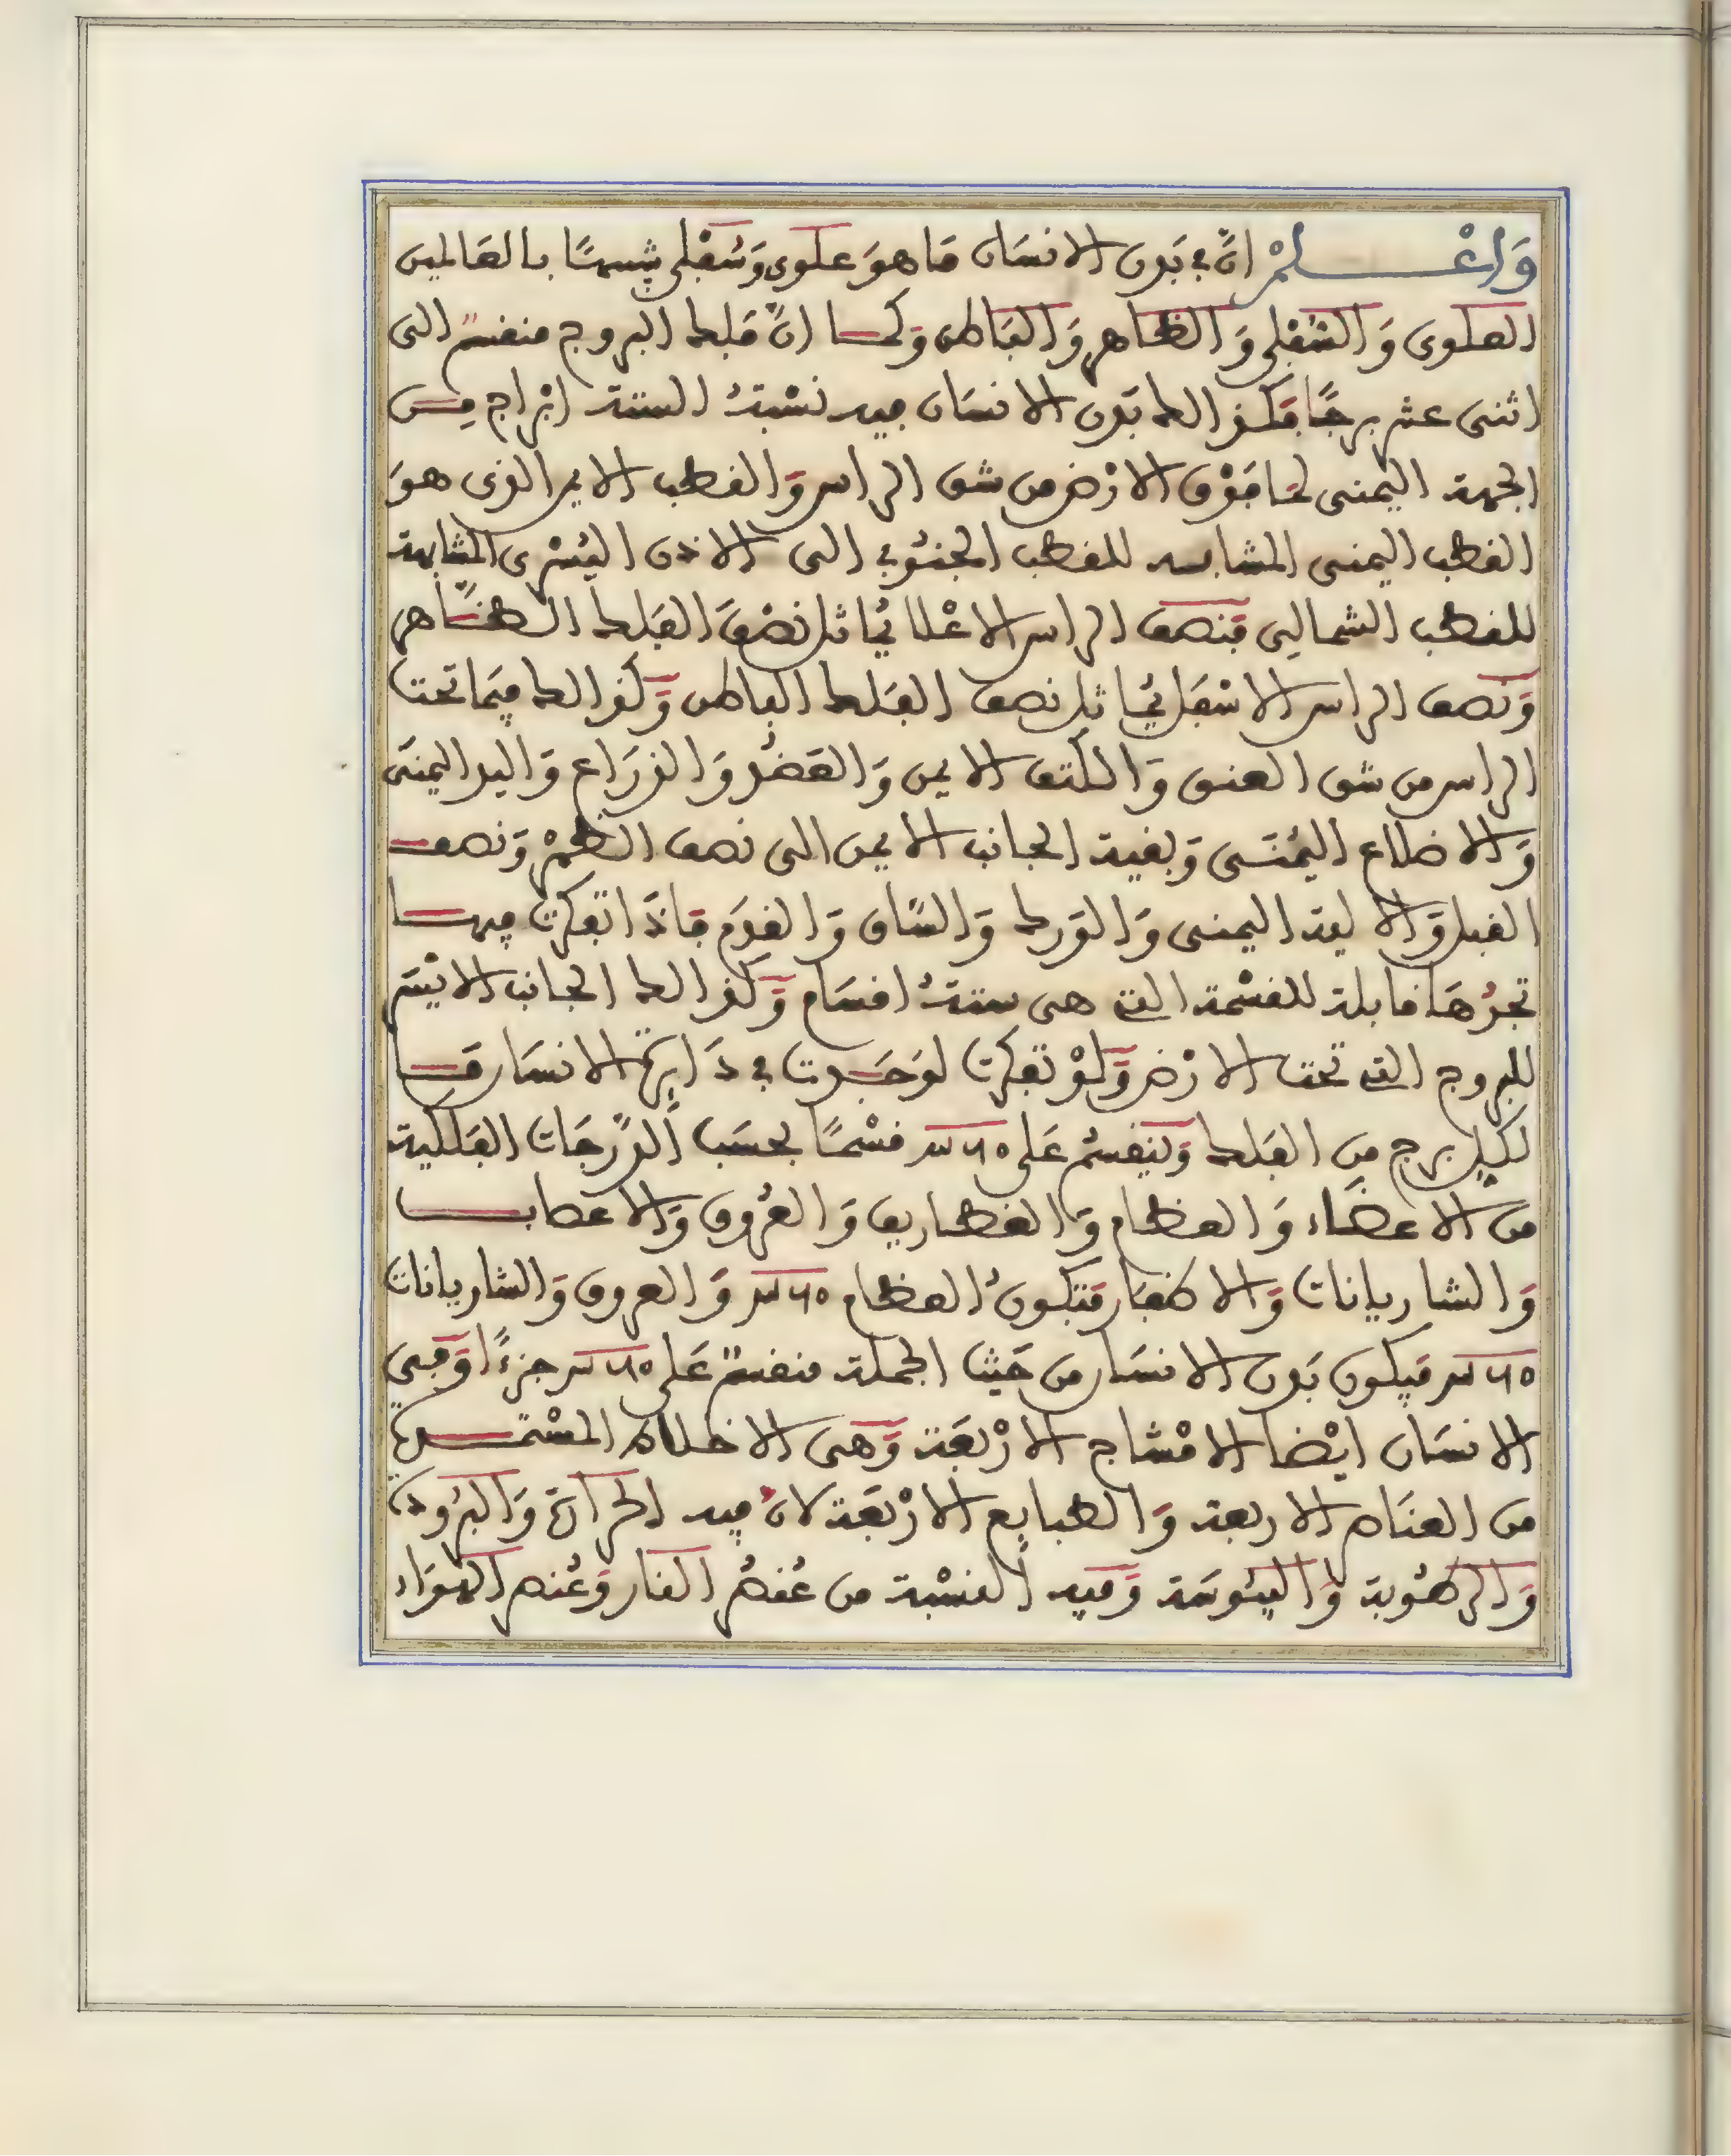 وَاعْلمْ انّ في بَدن الانسَان مَا هوَ علوى وَسُفْلى شبيهًا بالعَالمين
العلوى وَالسُفْلى وَالظاهر وَالبَاطن وَكما انّ فَلك البروج منقسمٌ الى
اثنى عشر برجًا فكذالك بَدن الانسَان فيه نسْبَةُ الستة ابْراج مِن
الجهة اليمنى لمَا فَوْق الارْض من شق الراس وَالقطب الايمن الذى هوَ
القطب اليمنى المشابه للقطب الجنُوبي الى الاذن اليُسْرى المشابهة
للقطب الشمالِى فَنصف الراس الاعْلا يُماثل نصْفَ الفَلك الظاهر
وَنصف الراس الاسْفَل يُماثل نصف الفَلك الباطن وَكذالك فيمَا تحت
الراس من شق العنق وَالكتف الايمن وَالعَضُد وَالذرَاع وَاليد اليمنَى
وَالاضلاع اليُمْنَى وَبقية الجانب الايمن الى نصف الظهْر وَنصف
القبل وَالالية اليمنى وَالوَرك وَالسَّاق وَالقدَم فَاذَا تفكرت فيها
تجدُهَا قابلة للقسْمة التي هى ستةُ اقسَام وَكذالك الجانب الايْسَر
للبروج التي تحت الارْض وَلوْ تفكرت لوَجَدت في دَايرة الانسَان قسما
لكل برج مِن الفَلك وَينقسُم عَلى ٣٦٥ قسْمًا بحسَب الدّرجَات الفَلكية
من الاعضَاء وَالعظام وَالغضاريف وَالعُروق وَالاعصاب
وَالشاريانات وَالاظفَار فتكونُ العظام ٣٦٥ وَالعروق وَالشاريانات
٣٦٥ فيكون بَدن الانسَان من حَيث الجملة منقسمٌ عَلى ٣٦٥ جزءًا وَفى
الانسَان ايْضا الامْشاج الارْبَعَة وَهى الاخلاط المسْتمدة
من العنَاصر الاربعة وَالطبايع الارْبَعَة لانّ فيه الحرَارة وَالبرُودة
وَالرطُوبة وَاليبُوسَة وَفيه النسْبة من عُنصُر النار وَعُنصر الهوَاء